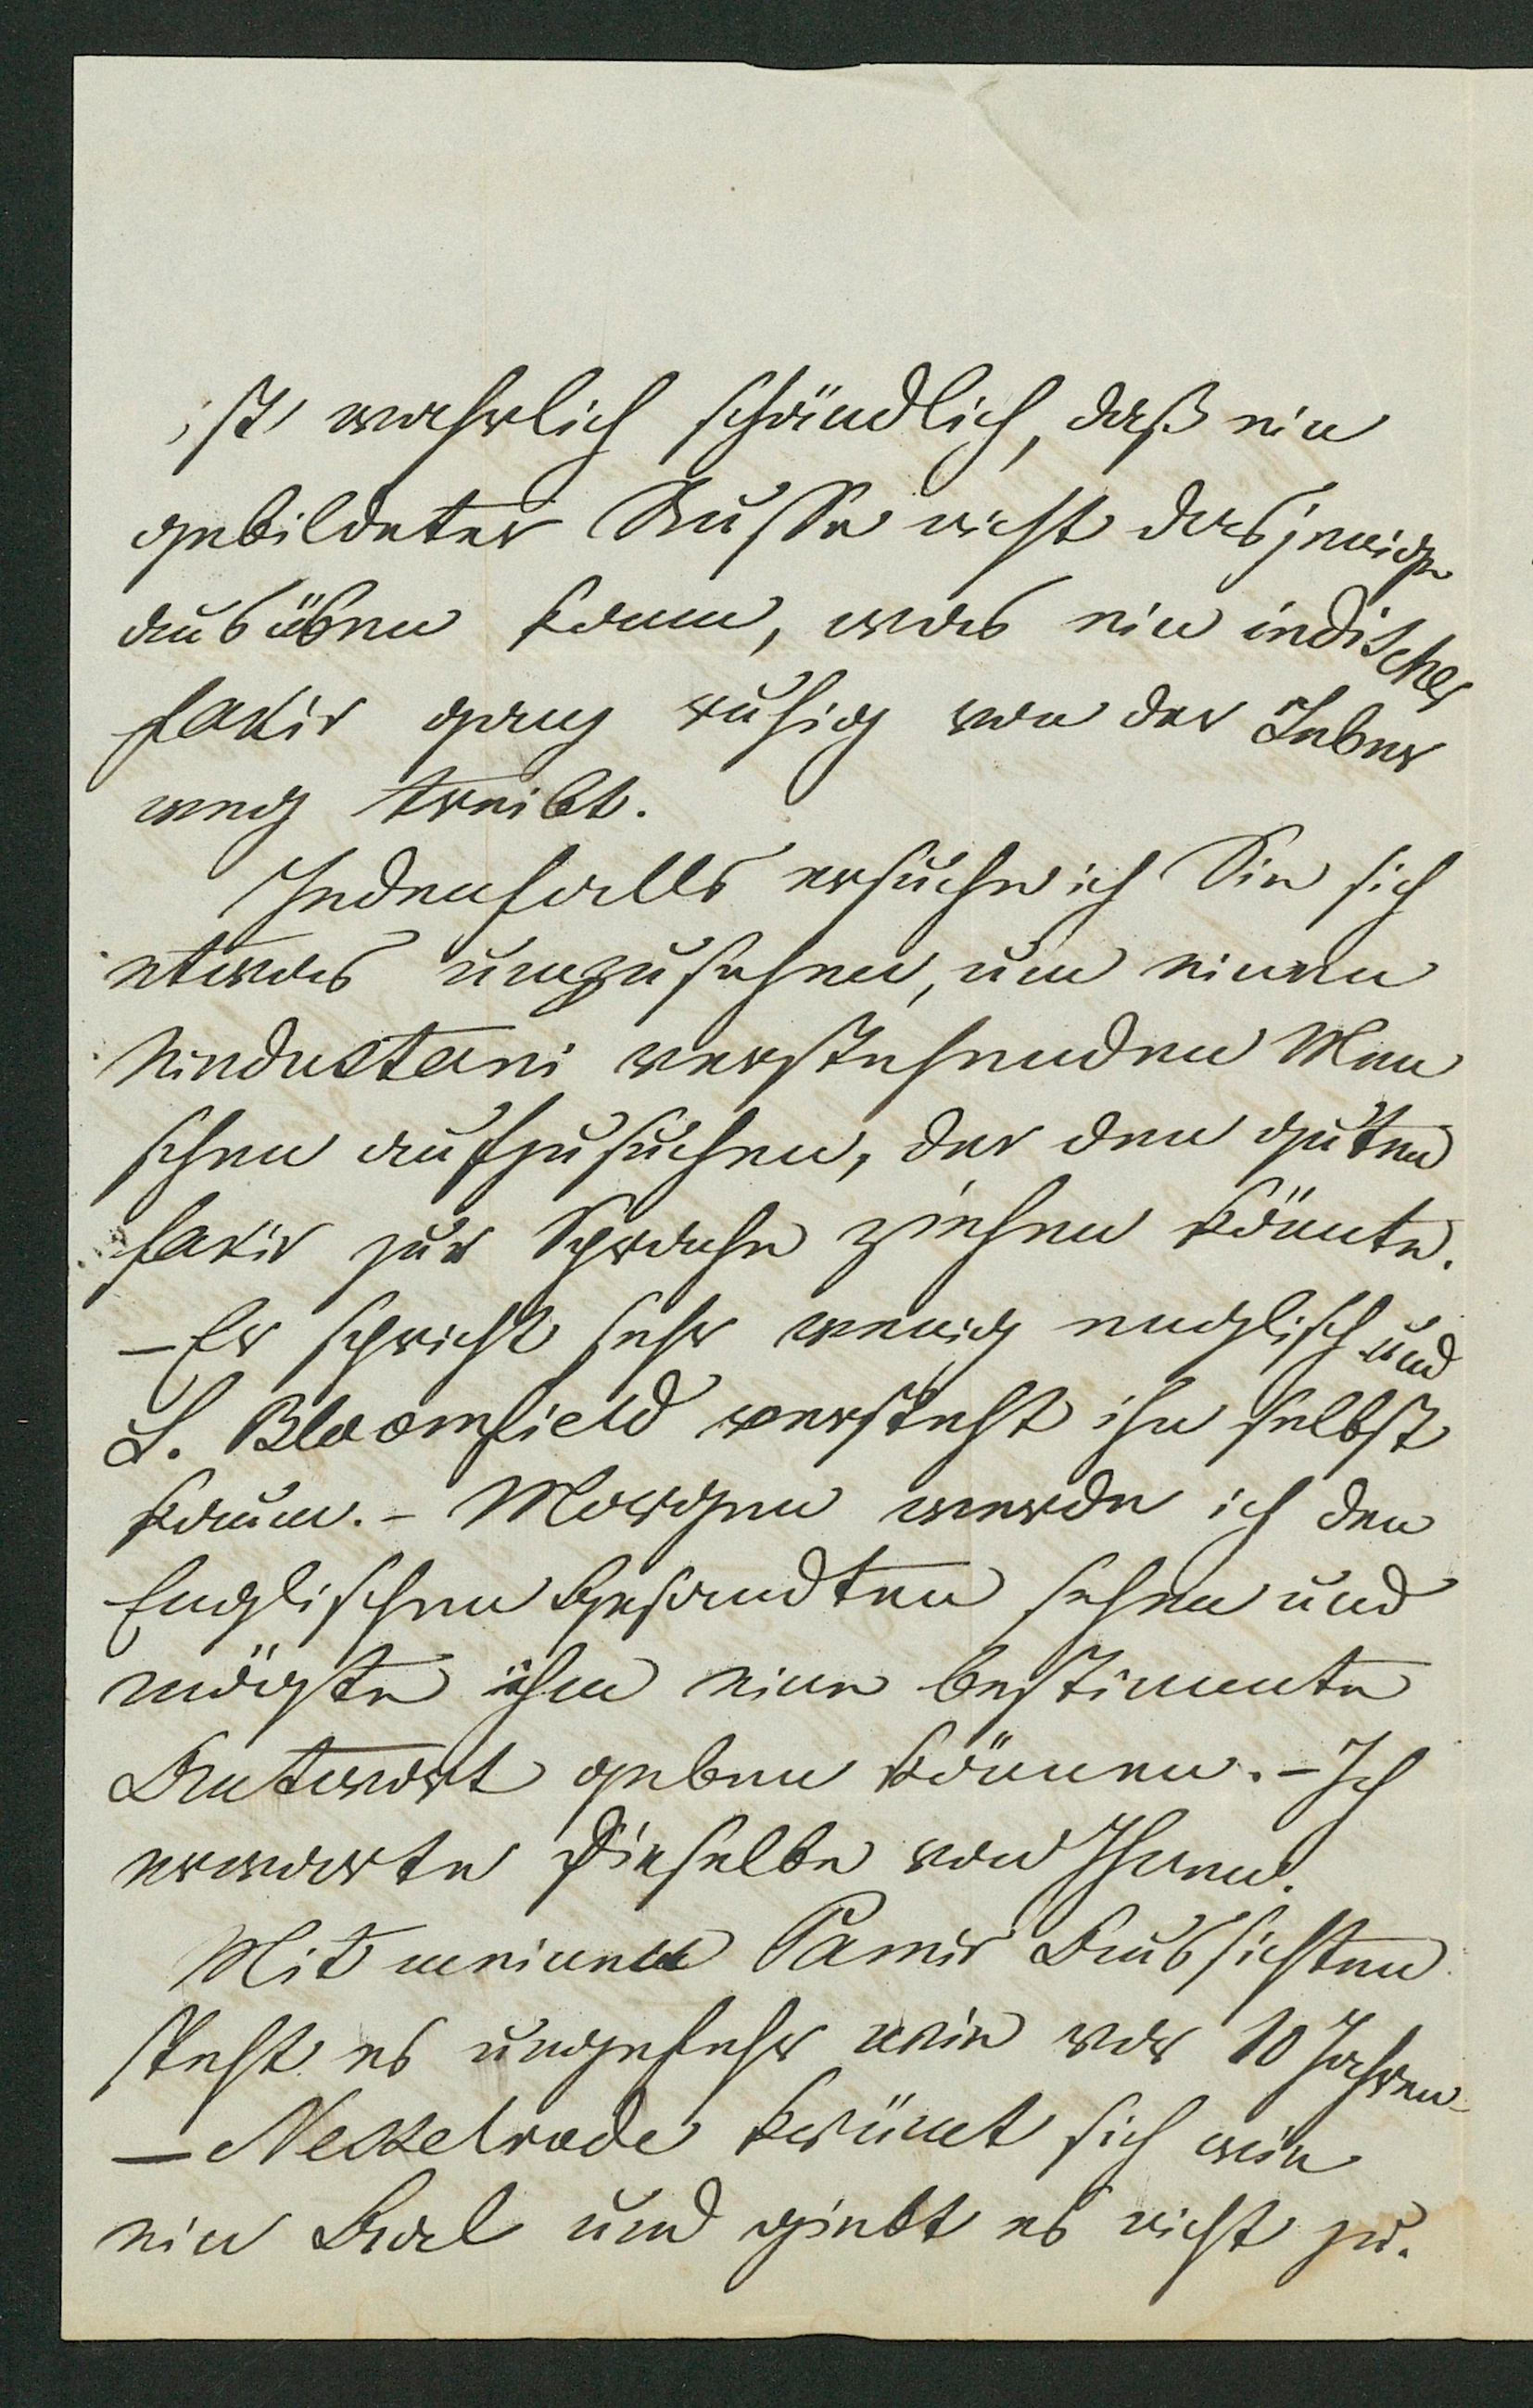 ist wahrlich schändlich, daß ein
gebildeter Russe nicht dasjenige
ausüben kann, was ein indischer
Fakir ganz ruhig von der Leber
weg treibt.
Jedenfalls ersuche ich Sie sich
etwas umzusehen, um einen
hindustani verstehenden Men
schen aufzusuchen, der den guten
Fakir zur Sprache ziehen könnte.
– Er spricht sehr wenig englisch und
L. Bloomfield versteht ihn selbst
kaum. – Morgen werde ich den
Englischen Gesandten sehen und
mögte ihm eine bestimmte
Antwort geben können. – Ich
erwarte dieselbe von Ihnen.
Mit meinen Pamir Aussichten
steht es ungefehr wie vor 10 Jahren
– Nesselrode krümt sich wie
ein Aal und giebt es nicht zu.